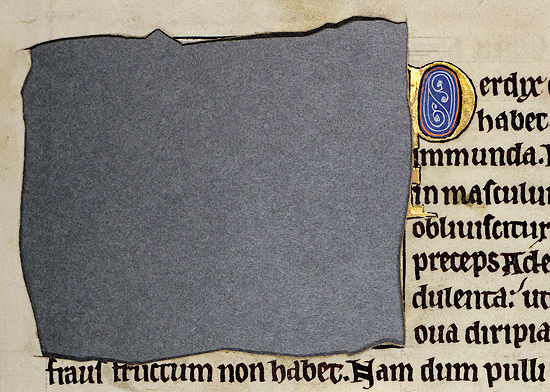 Perdyx
habet
immunda.
in masculum
obliuiscitur
preceps Ade
dulenta: ut
oua diripia
fraus fructum non habet. Nam dum pulli